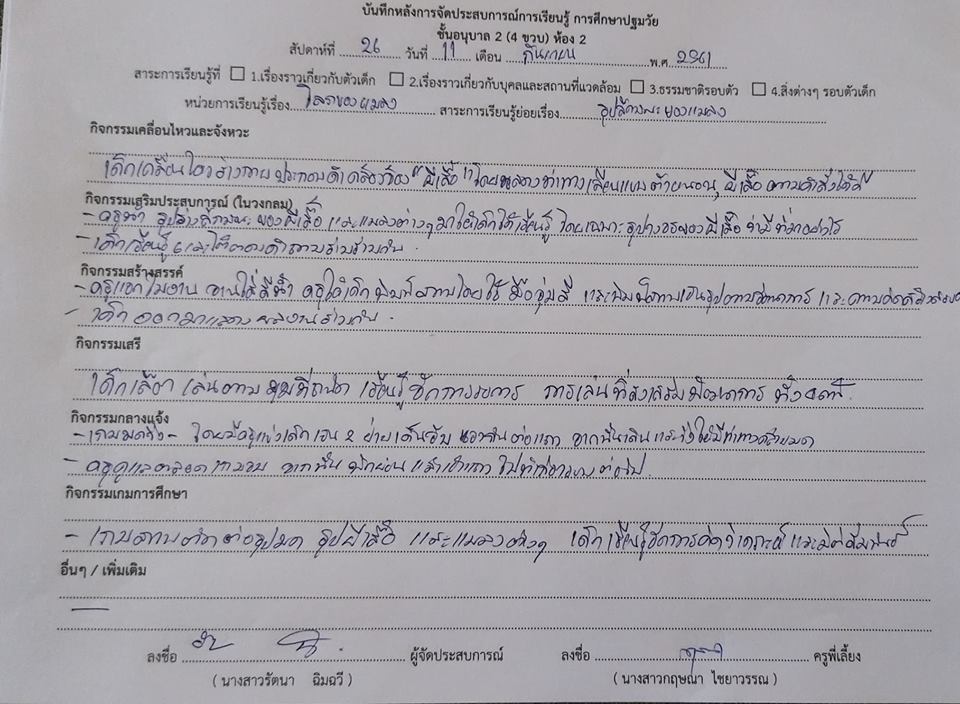 บันทึกหลังการจัดประสบการณ์การเรียนรู้ การศึกษาปฐมวัย
ชั้นอนุบาล 2 (4 ขวบ) ห้อง 2
สัปดาห์ที่ 26 วันที่ 11 เดือน กันยายน พ.ศ. 2561
สาระการเรียนรู้ที่ ☐ 1.เรื่องราวเกี่ยวกับตัวเด็ก ☐ 2.เรื่องราวเกี่ยวกับบุคลและสถานที่แวดล้อม ☐ 3.ธรรมชาติรอบตัว ☐ 4.สิ่งต่างๆ รอบตัวเด็ก
หน่วยการเรียนรู้เรื่อง โลกของแมลง สาระการเรียนรู้ย่อยเรื่อง รูปลักษณะของแมลง
กิจกรรมเคลื่อนไหวและจังหวะ
เด็กเคลื่อนไหวร่างกายประกอบคำคล้องจอง "ผีเสื้อ" โดยแสดงท่าทางเลียนแบบตัวหนอน ผีเสื้อ ตามคำสั่งได้ดี
กิจกรรมเสริมประสบการณ์ (ในวงกลม)
- ครูนำ รูปร่างลักษณะของผีเสื้อ และแมลงต่างๆมาให้เด็กได้เรียนรู้ โดยเฉพาะรูปวงจรของผีเสื้อ ว่ามีที่มาอย่างไร
- เด็กเรียนรู้ และโต้ตอบคำถามร่วมกัน
กิจกรรมสร้างสรรค์
- ครูแจกใบงาน จานใส่สีน้ำ ครูให้เด็กพิมพ์ภาพโดยใช้มือจุ่มสี และพิมพ์ภาพเป็นรูปตามจินตนาการ และความคิด
- เด็กออกมาแสดงผลงานร่วมกัน
กิจกรรมเสรี
เด็กเลือกเล่นตามมุมที่ถนัด เรียนรู้จักการรอคอย การเล่นที่ส่งเสริมพัฒนาการ ทั้ง 4 ด้าน
กิจกรรมกลางแจ้ง
- เกมมด - โดยมีครูแบ่งเด็กเป็น 2 ฝ่าย ต่อแถว จากนั้นเดิน
- ครูดูแลตลอด จากนั้น พักผ่อน แล้วเข้าแถว ไปทำกิจกรรมต่อไป
กิจกรรมเกมการศึกษา
- เกมภาพตัดต่อรูปมด รูปผีเสื้อ และแมลงต่างๆ เด็กเรียนรู้จักการคิดวิเคราะห์ และมิติสัมพันธ์
อื่นๆ / เพิ่มเติม
ลงชื่อ ผู้จัดประสบการณ์ ลงชื่อ ครูพี่เลี้ยง
( นางสาวรัตนา ฉิมฉวี ) ( นางสาวกฤษณา ไชยาวรรณ )